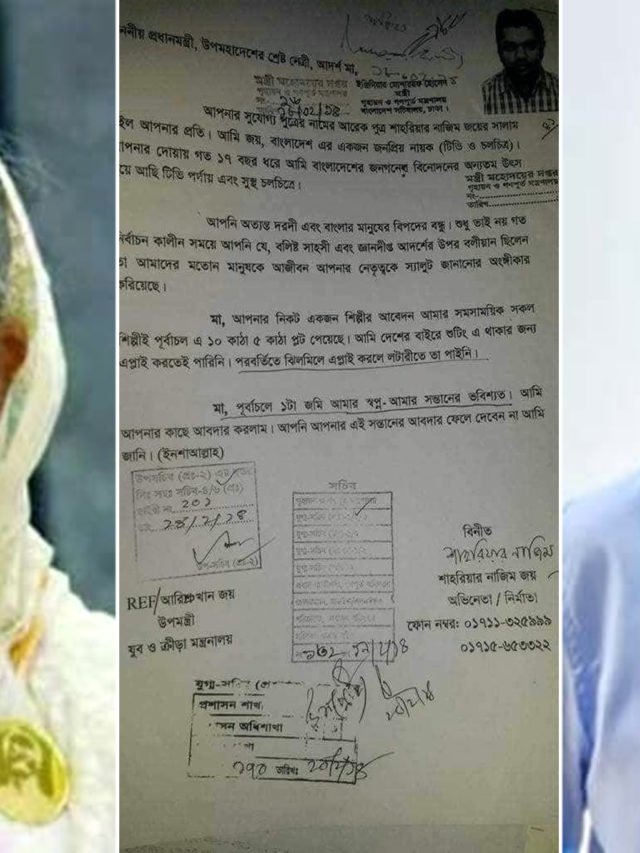 ননীয় প্রধানমন্ত্রী, উপমহাদেশের শ্রেষ্ট নেত্রী, আদর্শ মা,
মন্ত্রী মহোদয়ের দপ্তর
গৃহায়ন ও গণপূর্ত মন্ত্রণালয়
ইঞ্জিনিয়ার মোশাররফ হোসেন
মন্ত্রী
গৃহায়ন ও গণপূর্ত মন্ত্রণালয়
বাংলাদেশ সচিবালয়, ঢাকা।
আপনার সুযোগ্য পুত্রের নামের আরেক পুত্র শাহরিয়ার নাজিম জয়ের সালাম
ইল আপনার প্রতি। আমি জয়, বাংলাদেশ এর একজন জনপ্রিয় নায়ক (টিভি ও চলচিত্র)।
পনার দোয়ায় গত ১৭ বছর ধরে আমি বাংলাদেশের জনগনের বিনোদনের অন্যতম উৎস
য়ে আছি টিভি পর্দায় এবং সুস্থ চলচিত্রে।
মন্ত্রী মহোদয়ের দপ্তর
গৃহায়ন ও গণপূর্ত মন্ত্রণালয়
নং-
তারিখ
আপনি অত্যন্ত দরদী এবং বাংলার মানুষের বিপদের বন্ধু। শুধু তাই নয় গত
নির্বাচন কালীন সময়ে আপনি যে, বলিষ্ট সাহসী এবং জ্ঞানদীপ্ত আদর্শের উপর বলীয়ান ছিলেন
তা আমাদের মতোন মানুষকে আজীবন আপনার নেতৃত্বকে স্যালুট জানানোর অংঙ্গীকার
করিয়েছে।
মা, আপনার নিকট একজন শিল্পীর আবেদন আমার সমসাময়িক সকল
শিল্পীই পূর্বাচল এ ১০ কাঠা ৫ কাঠা প্লট পেয়েছে। আমি দেশের বাইরে শুটিং এ থাকার জন্য
এপ্লাই করতেই পারিনি। পরবর্তিতে ঝিলমিলে এপ্লাই করলে লটারীতে তা পাইনি।
মা, পূর্বাচলে ১টা জমি আমার স্বপ্ন-আমার সন্তানের ভবিশ্যত। আমি
আপনার কাছে আবদার করলাম। আপনি আপনার এই সন্তানের আবদার ফেলে দেবেন না আমি
জানি। (ইনশাআল্লাহ)
উপসচিব (প্রঃ-২) এর দপ্তর
২০১
২৪/২/১৪
উপ-সচিব (প্রঃ-২)
সচিব
বিনীত
শাহরিয়ার নাজিম
শাহরিয়ার নাজিম জয়
অভিনেতা / নির্মাতা
ফোন নম্বর: ০১৭১১-৩২৫৯৯৯
০১৭১৫-৬৫৩৩২২
REF/আরিফ খান জয়
উপমন্ত্রী
যুব ও ক্রীড়া মন্ত্রনালয়
যুগ্ম-সচিব
প্রশাসন শাখা
অধিশাখা
তারিখঃ